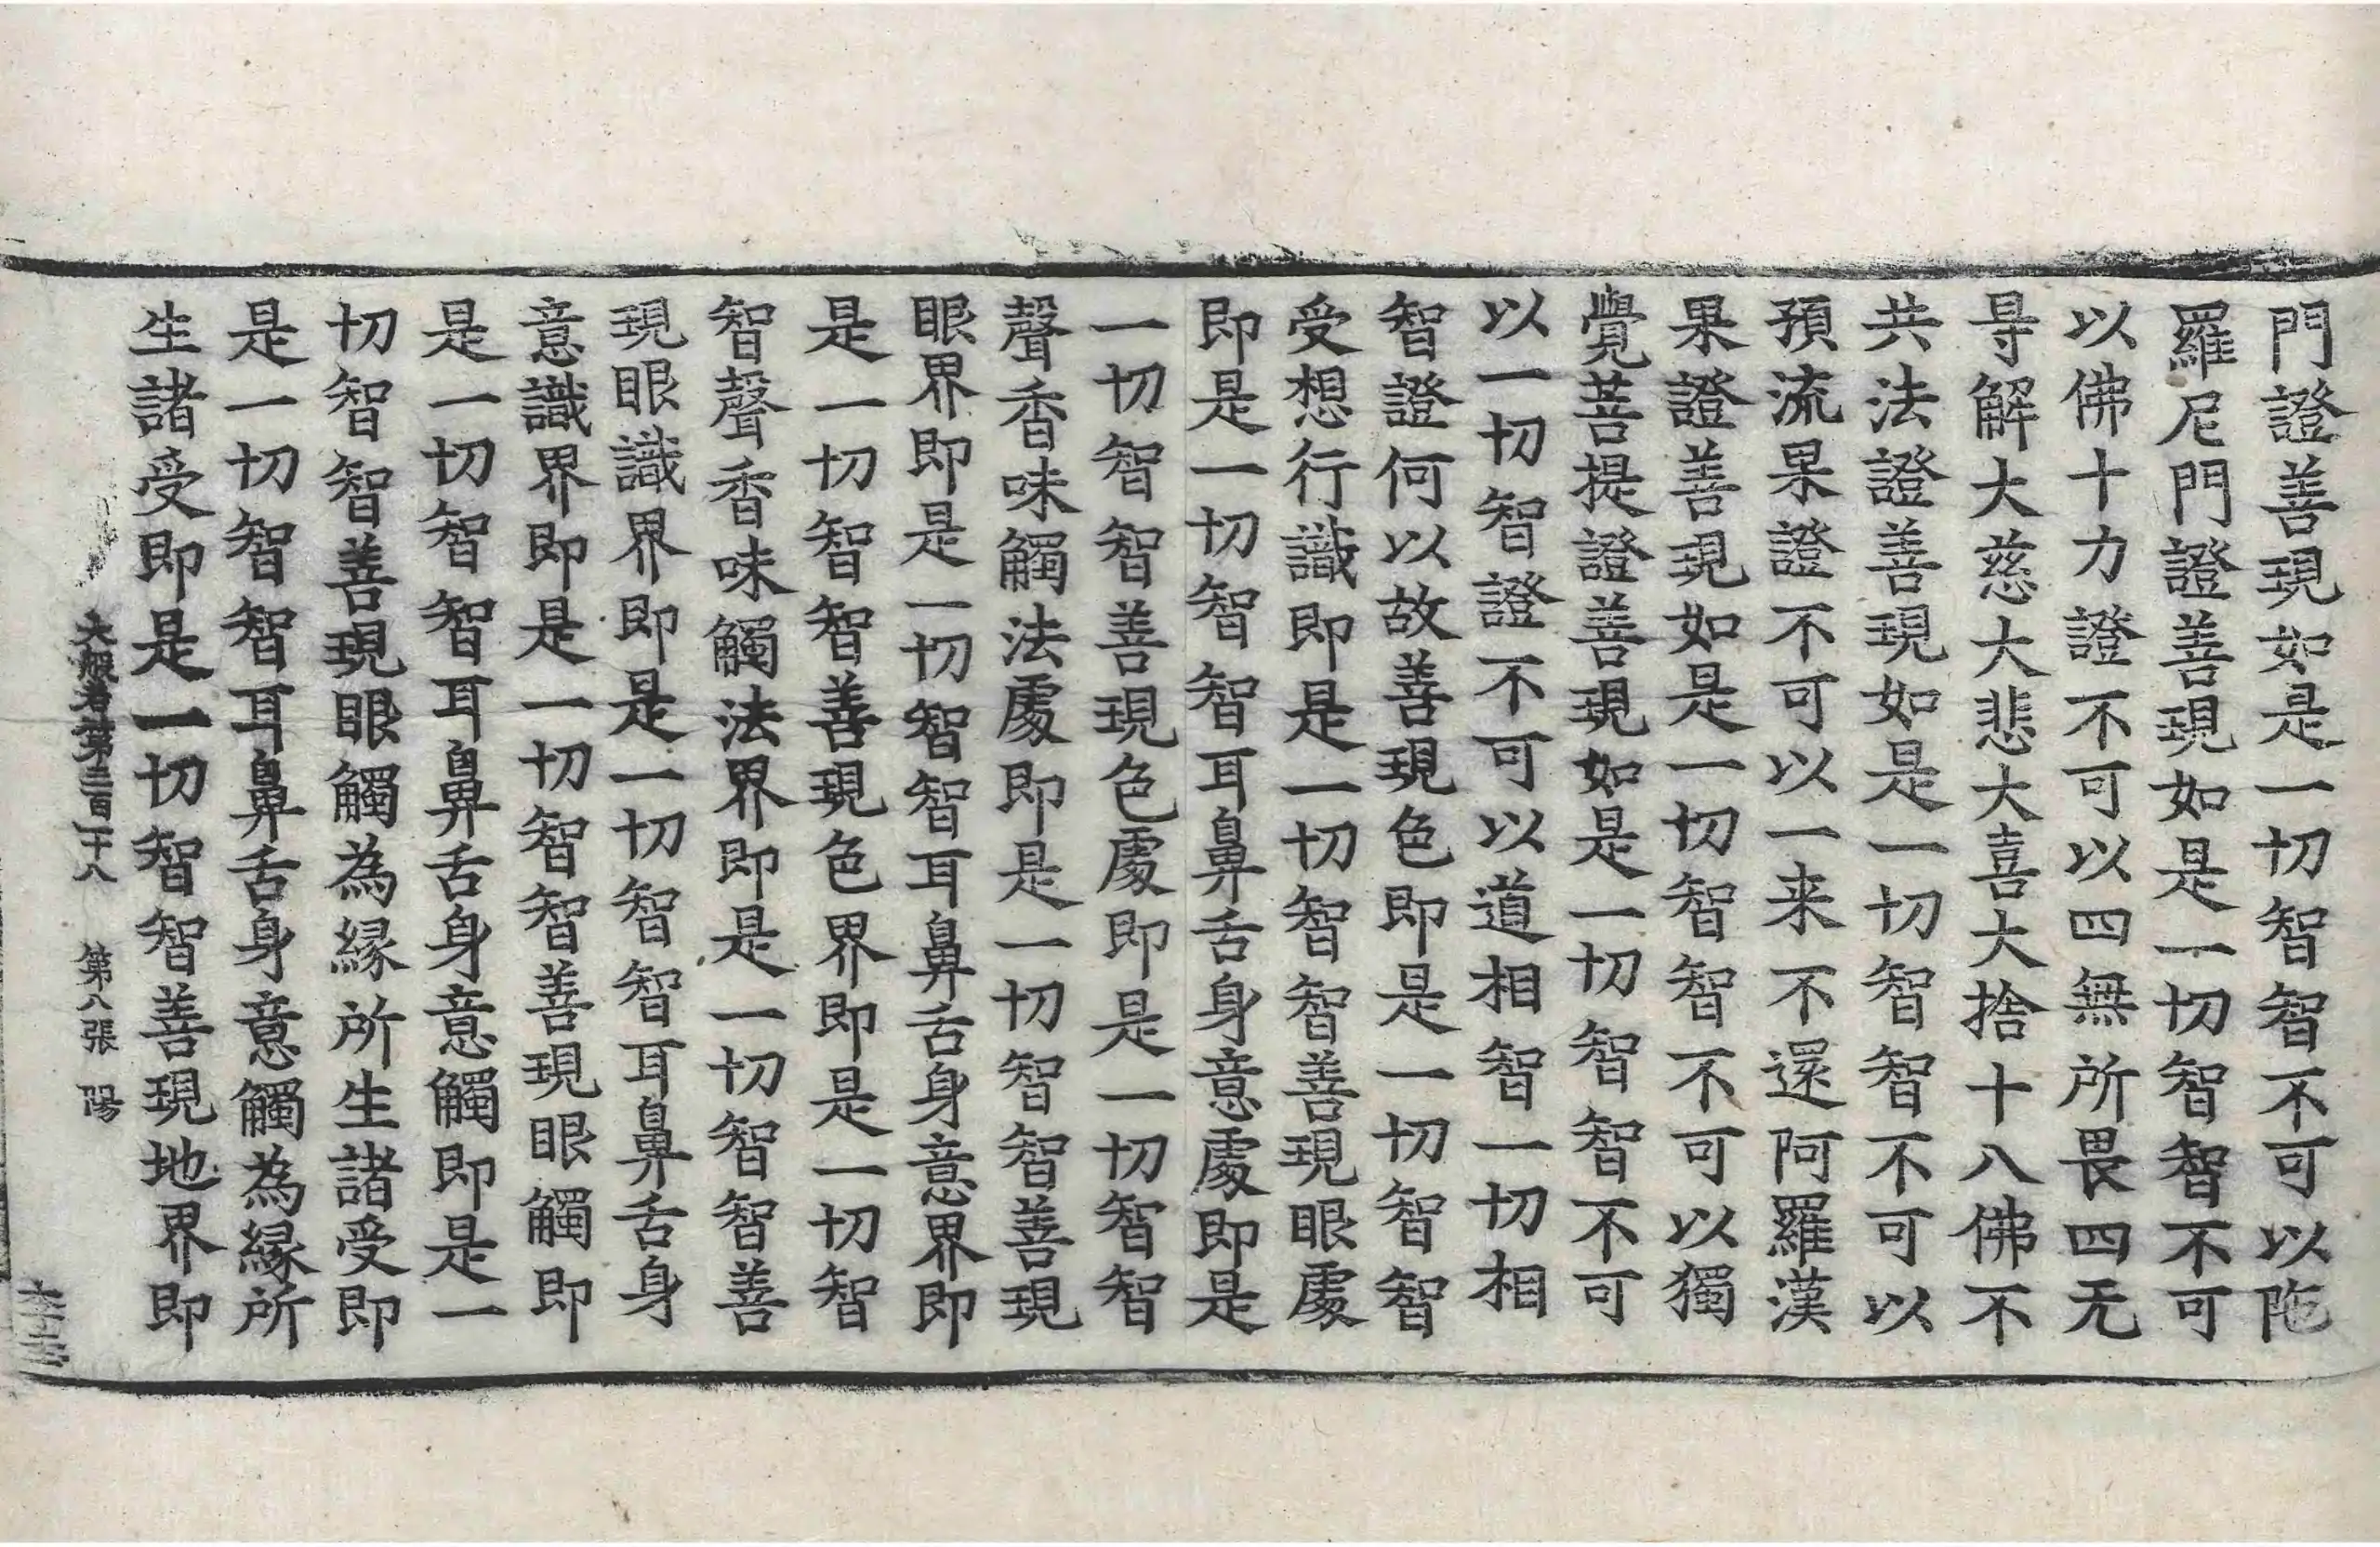 門證善現如是一切智智不可以陁
羅尼門證善現如是一切智智不可
以佛十力證不可以四無所畏四无
㝵解大慈大悲大喜大捨十八佛不
共法證善現如是一切智智不可以
預流果證不可以一来不還阿羅漢
果證善現如是一切智智不可以獨
覺菩提證善現如是一切智智不可
以一切智證不可以道相智一切相
智證何以故善現色即是一切智智
受想行識即是一切智智善現眼處
即是一切智智耳鼻舌身意處即是
一切智智善現色處即是一切智智
聲香味觸法處即是一切智智善現
眼界即是一切智智耳鼻舌身意界即
是一切智智善現色界即是一切智
智聲香味觸法界即是一切智智善
現眼識界即是一切智智耳鼻舌身
意識界即是一切智智善現眼觸即
是一切智智耳鼻舌身意觸即是一
切智智善現眼觸為緣所生諸受即
是一切智智耳鼻舌身意觸為緣所
生諸受即是一切智智善現地界即
大般若第三百二十八 第八張 陽